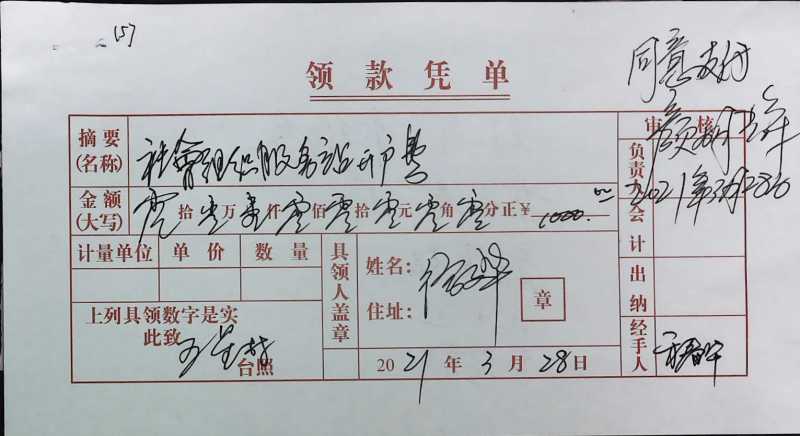 157
领款凭单
同意支付
摘要
(名称)
社会组织服务站开户费
审核
金额
(大写)
零拾零万壹仟零佰零拾零元零角零分正￥1000.00
负责人
2021年3月28日
会计
计量单位 单价 数量
具领人盖章
姓名:
住址:
章
出纳
上列具领数字是实
此致
台照
2021年3月28日
经手人